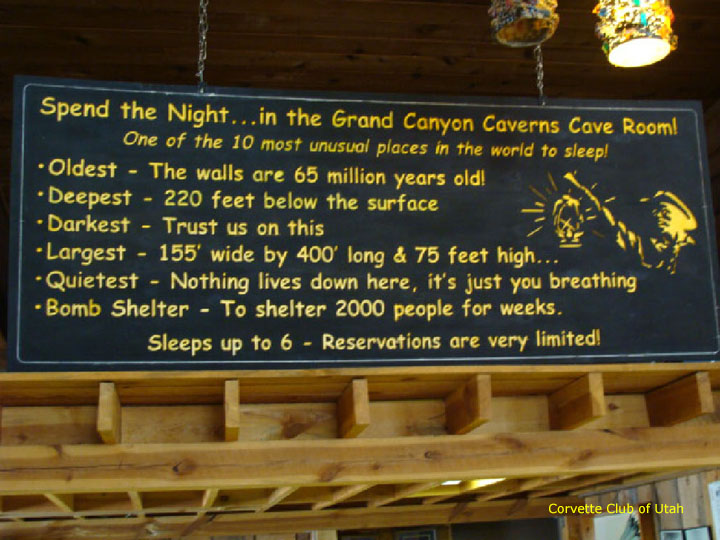 Spend the Night...in the Grand Canyon Caverns Cave Room!
One of the 10 most unusual places in the world to sleep!
• Oldest - The walls are 65 million years old!
• Deepest - 220 feet below the surface
• Darkest - Trust us on this
• Largest - 155' wide by 400' long & 75 feet high...
• Quietest - Nothing lives down here, it's just you breathing
• Bomb Shelter - To shelter 2000 people for weeks.
Sleeps up to 6 - Reservations are very limited!
Corvette Club of Utah